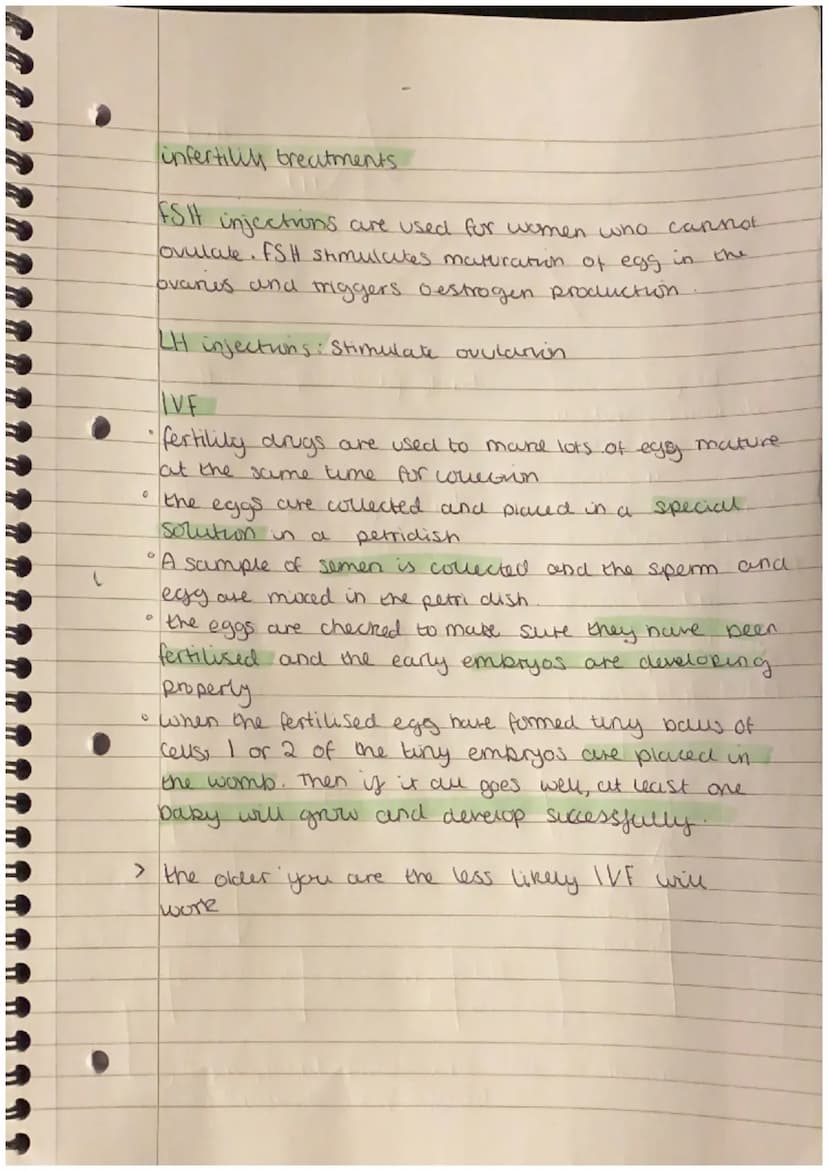 infertility treatments
FSH injections are used for women who cannot
ovulate. FSH stimulates maturation of egg in the
ovaries and triggers oestrogen production.
LH injections: Stimulate ovulation
IVF
• fertility drugs are used to make lots of egg mature
at the same time for collection
• the eggs are collected and placed in a special
solution in a petridish
• A sample of semen is collected and the sperm and
egg are mixed in the petri dish.
• the eggs are checked to make sure they have been
fertilised and the early embryos are developing
properly
• when the fertilised egg have formed tiny balls of
cells, 1 or 2 of the tiny embryos are placed in
the womb. Then if it all goes well, at least one
baby will grow and develop successfully.
> the older you are the less likely IVF will
work